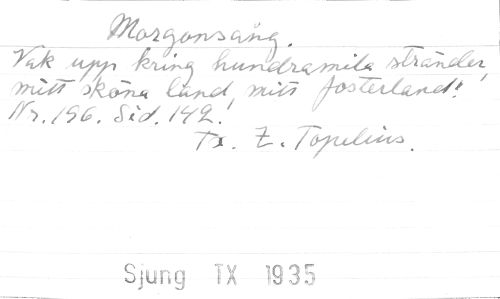 Morgonsång.
Vak upp kring hundramila stränder,
mitt sköna land, mitt fosterland!
Nr. 196. Sid. 142.
Tx. Z. Topelius.
Sjung TX 1935